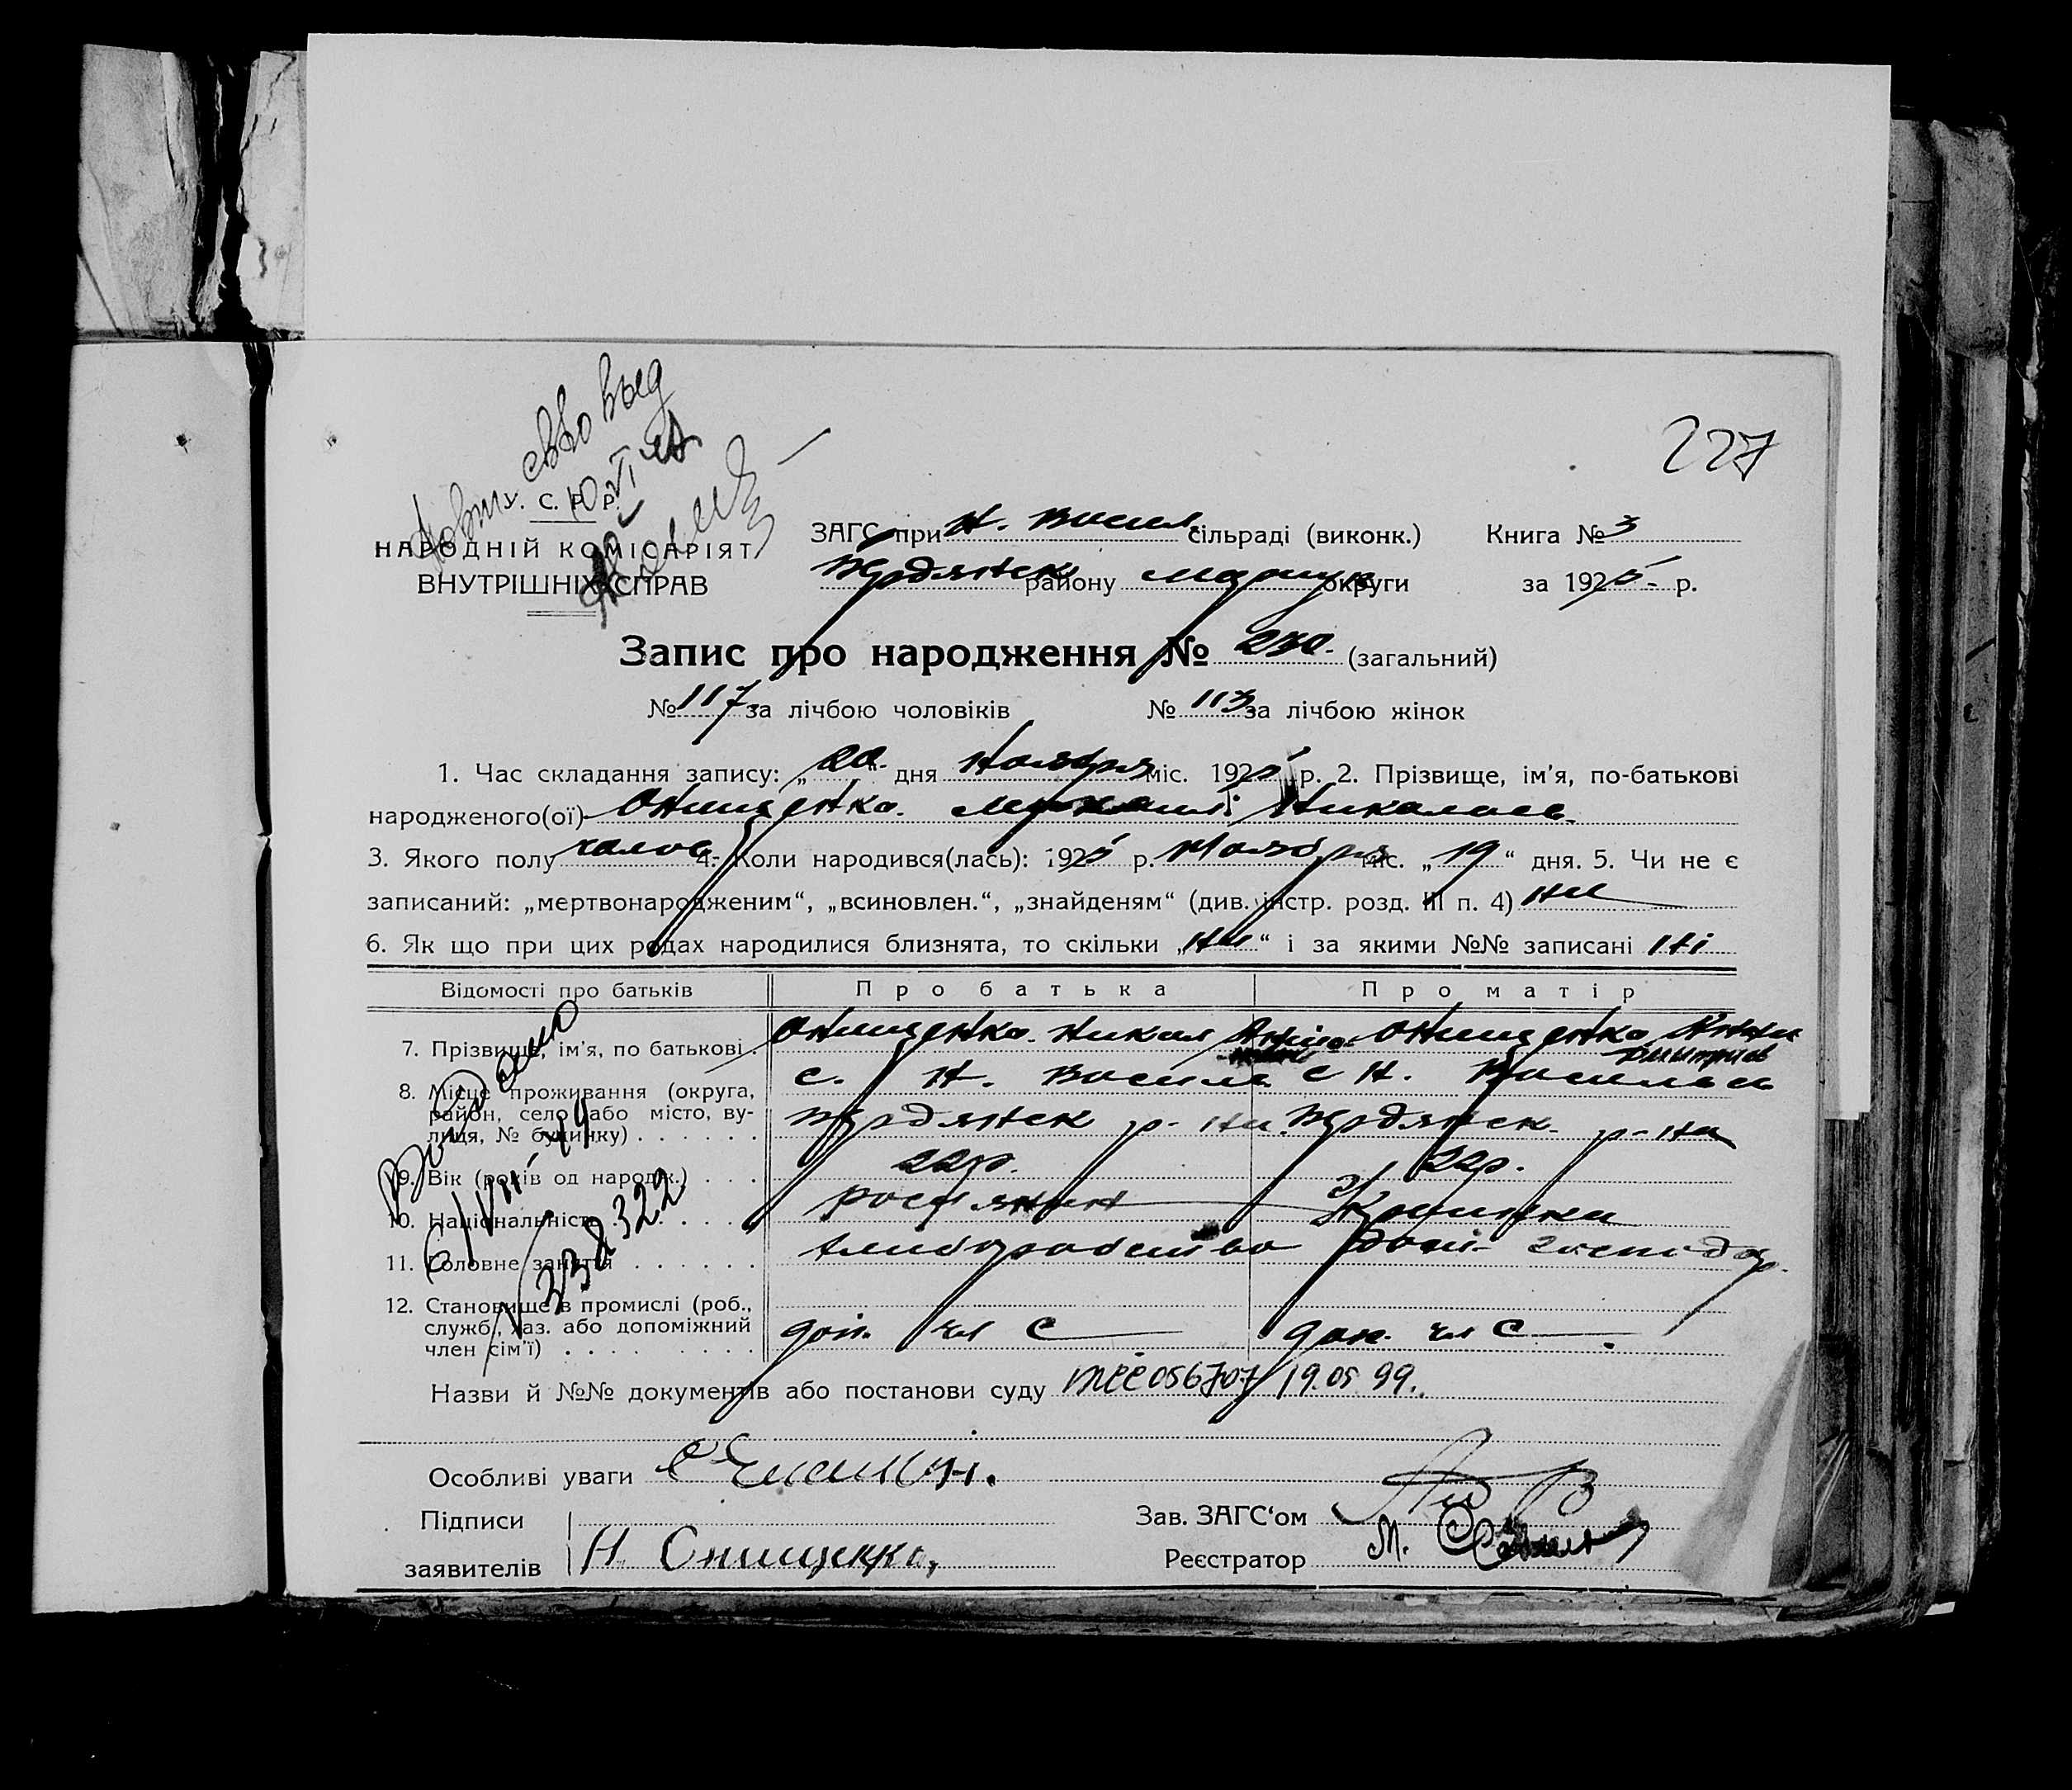 227
У. С. Р. Р.
НАРОДНІЙ КОМІСАРІЯТ
ВНУТРІШНІХ СПРАВ
ЗАГС при Н. Васил. сільраді (виконк.) Книга № 3
Бердянськ району Маріуп округи за 1925 р.
Запис про народження № 230. (загальний)
№ 117 за лічбою чоловіків № 113 за лічбою жінок
1. Час складання запису: „20“ дня Ноября міс. 1925 р. 2. Прізвище, ім'я, по-батькові
народженого(ої) Онищенко. Михаил Николаев.
3. Якого полу чолов. 4. Коли народився(лась): 1925 р. Ноября міс. „19“ дня. 5. Чи не є
записаний: „мертвонародженим“, „всиновлен.“, „знайденям“ (див. інстр. розд. III п. 4) ни
6. Як що при цих родах народилися близнята, то скільки „ни“ і за якими №№ записані ні
Відомості про батьків Про батька Про матір
7. Прізвище, ім'я, по батькові . Онищенко. Никол Онищенко Анна
Дмитриев
8. Місце проживання (округа, район, село або місто, вулиця, № будинку) . . . . . . с. Н. Василь с Н. Василь
Бердянск р-на. Бердянск. р-на
9. Вік (років од народж.) . . . 22р. 22р.
10. Національність . . . . . . росіянин Українка
11. Головне заняття . . . . . . хліборобство дом. господар.
12. Становище в промислі (роб., служб., хаз. або допоміжний член сім'ї) . . . . . . . . доп. чл С доп. чл С
Видано
338322
Назви й №№ документів або постанови суду 056707 19.05.99.
Особливі уваги
Підписи
заявителів Н Онищенко,
Зав. ЗАГС'ом
Реєстратор М.